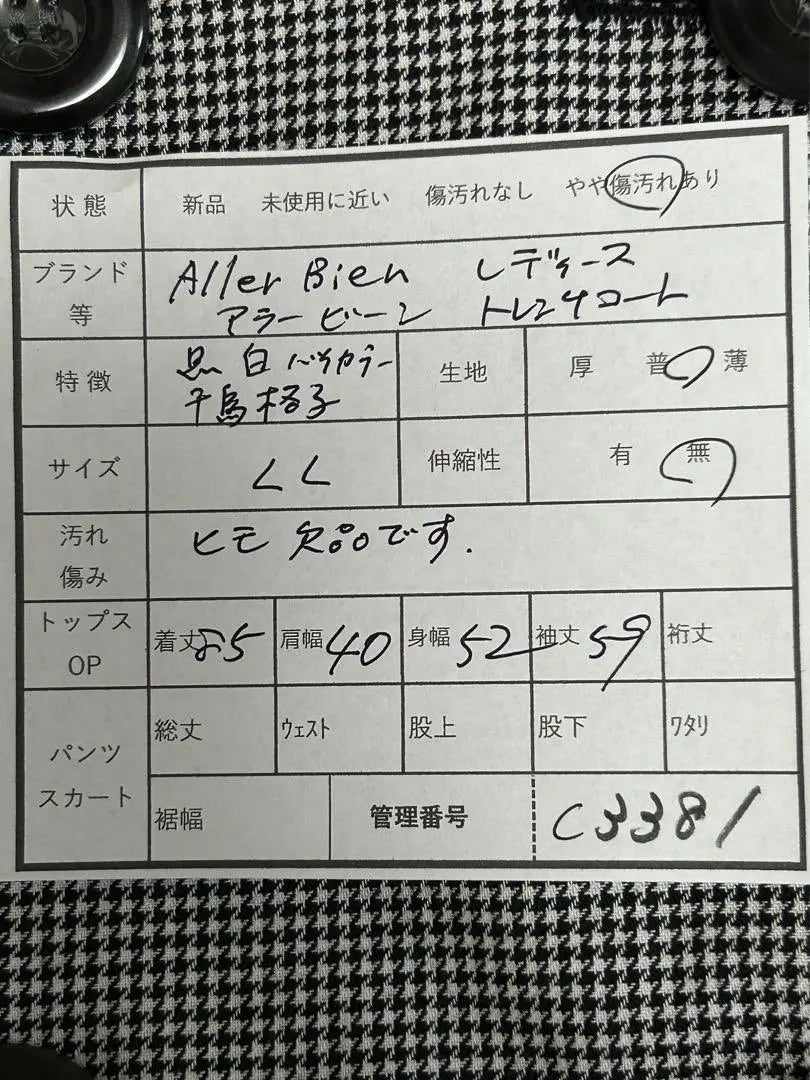 状態 新品 未使用に近い 傷汚れなし やや傷汚れあり
ブランド等 Aller Bien レディース
アラービーン トレンチコート
特徴 黒白バイカラー 生地 厚 普 薄
千鳥格子
サイズ LL 伸縮性 有 無
汚れ
傷み ヒモ欠品です.
トップス
OP 着丈 肩幅40 身幅52 袖丈59 裄丈
パンツ
スカート 総丈 ウェスト 股上 股下 ワタリ
裾幅 管理番号 C3381